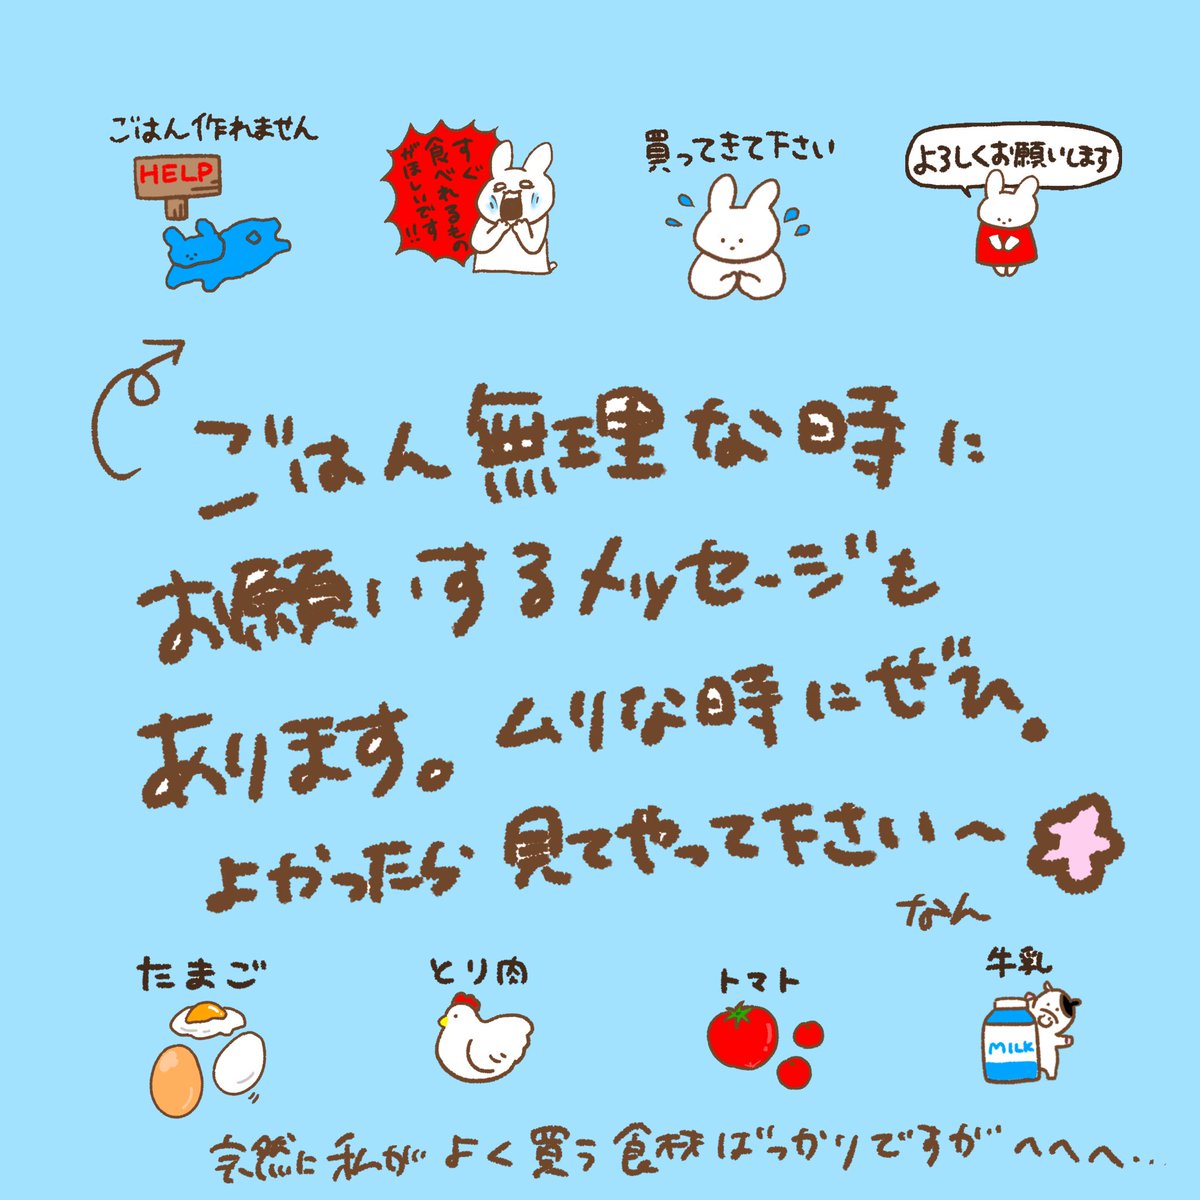 ごはん作れません
HELP
すぐ
食べれるもの
がほしいです!!
買ってきて下さい
よろしくお願いします
ごはん無理な時に
お願いするメッセージも
あります。ムリな時にぜひ。
よかったら見てやって下さい〜
なん
たまご
とり肉
トマト
牛乳
MILK
完然に私がよく買う食材ばっかりですがへへへ...